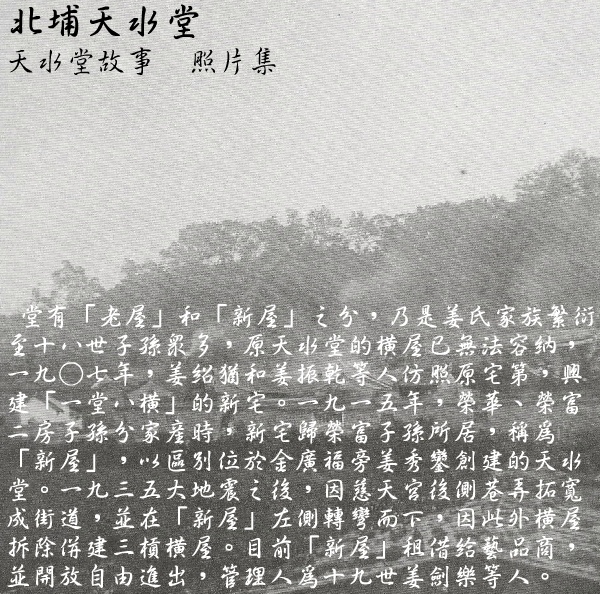 北埔天水堂
天水堂故事　照片集
堂有「老屋」和「新屋」之分，乃是姜氏家族繁衍
至十八世子孫眾多，原天水堂的橫屋已無法容納，
一九〇七年，姜紹猶和姜振乾等人仿照原宅第，興
建「一堂八橫」的新宅。一九一五年，榮華、榮富
二房子孫分家產時，新宅歸榮富子孫所居，稱為
「新屋」，以區別位於金廣福旁姜秀鑾創建的天水
堂。一九三五大地震之後，因慈天宮後側巷弄拓寬
成街道，並在「新屋」左側轉彎而下，因此外橫屋
拆除併建三槓橫屋。目前「新屋」租借給藝品商，
並開放自由進出，管理人為十九世姜劍樂等人。